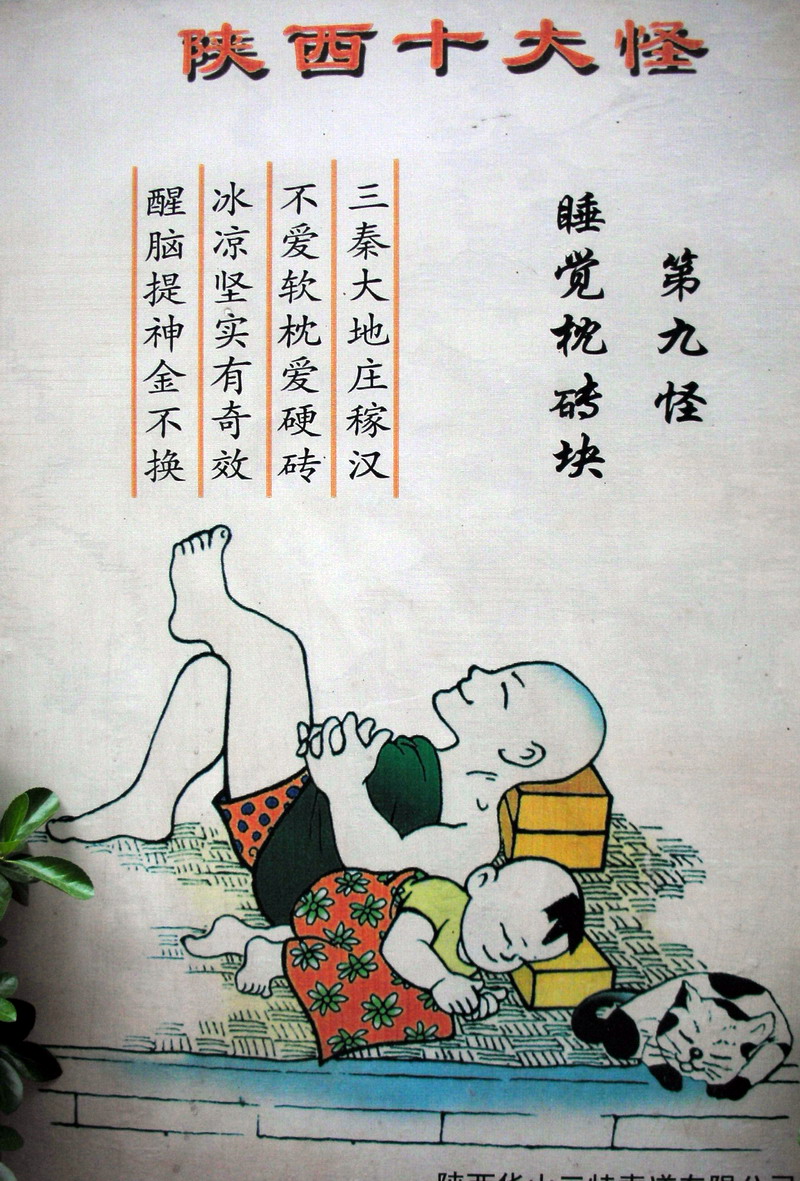 陕西十大怪
第九怪
睡觉枕砖块
三秦大地庄稼汉
不爱软枕爱硬砖
冰凉坚实有奇效
醒脑提神金不换